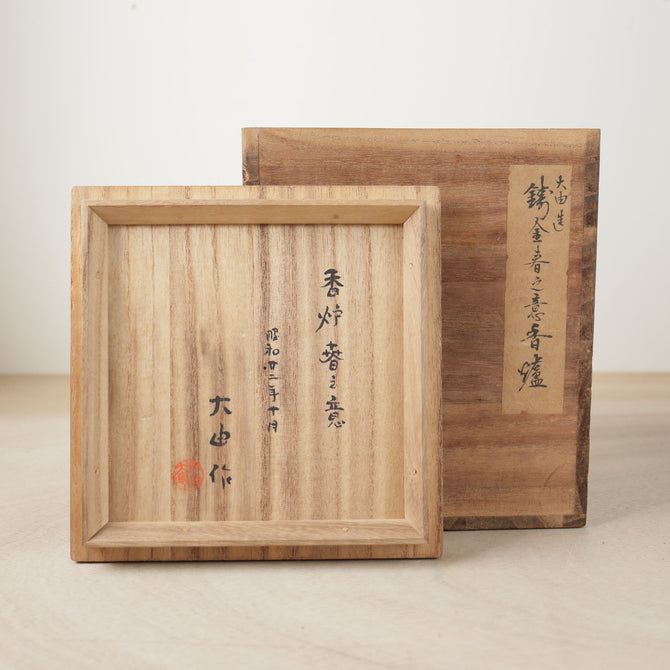 香炉春之意
昭和廿二年十月
大由作
大由造
鋳金春之意香爐